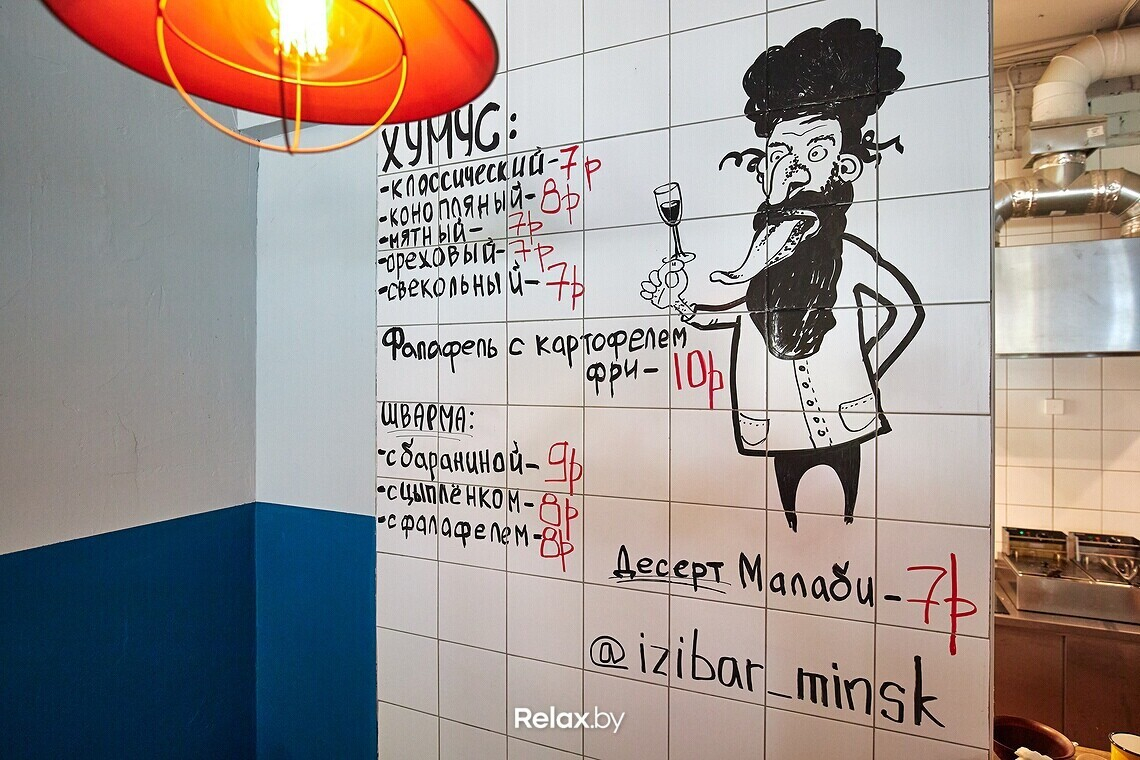 ХУМУС:
-классический-7р
-конопляный-8р
-мятный-7р
-ореховый-7р
-свекольный-7р
Фалафель с картофелем
фри-10р
ШВАРМА:
-с бараниной-9р
-с цыплёнком-8р
-с фалафелем-8р
Десерт Малаби-7р
@izibar_minsk
Relax.by